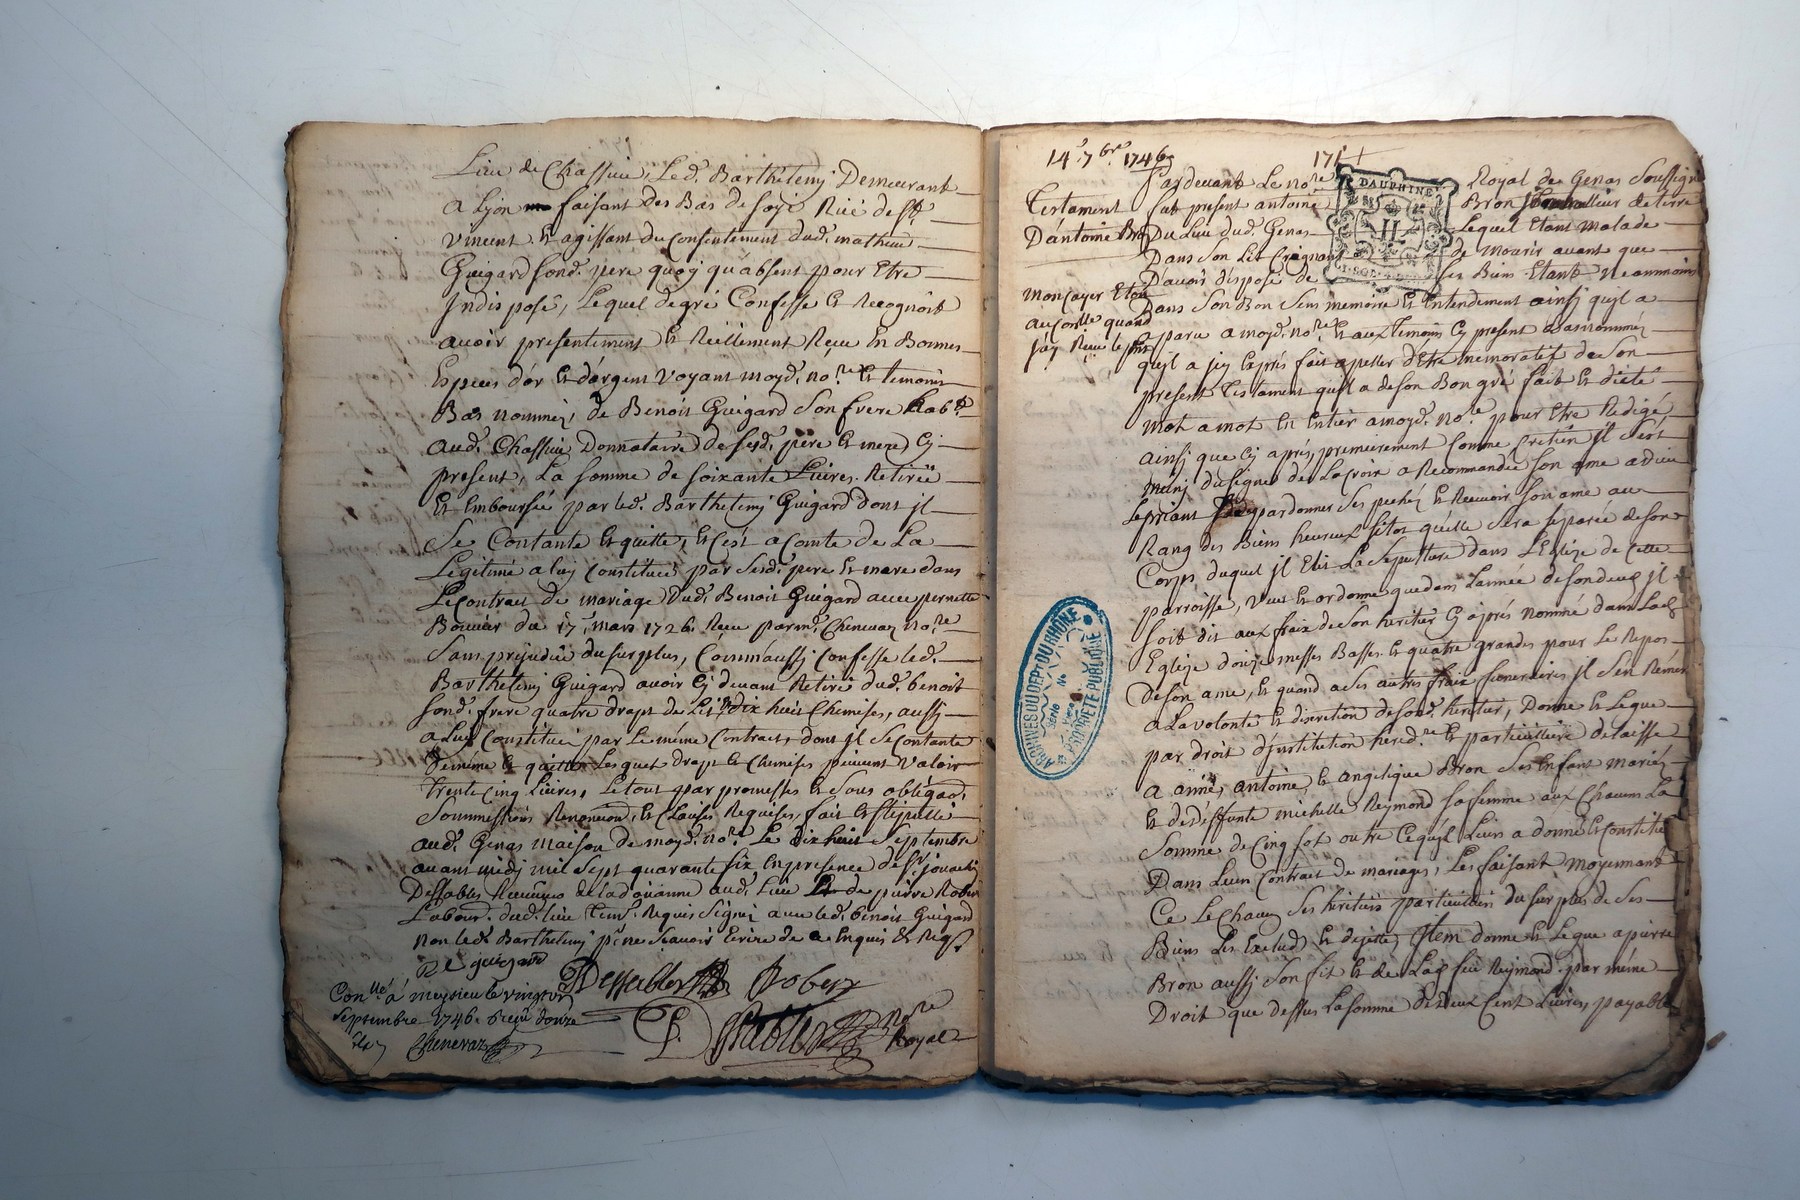 Lieu de Chassieu, Led. Barthelemy Demeurant
A Lyon faisant des Bas de soye Rüe de St
Vincent Et agissant du Consentement dud. mathieu
Guigard sond. pere quoy qu'absent pour Etre
Indisposé, Lequel de gré Confesse Et Recognoit
avoir presentement Et Reëllement Reçu En Bonnes
Especes d'or Et d'argent Voyant moyd. no.re Et temoins
Bas nommés, de Benoit Guigard Son frere hab.t
aud. Chassieu Donnataire de sesd. pere Et mere Cy
present, La somme de soixante Livres Retirée
Et Emboursée par led. Barthelemy Guigard dont jl
Se Contante Et quitte, Et C'est a Comte de La
Legitime a luy Constituée par Sesd. pere Et mere dans
Le Contrat de mariage Dud. Benoit Guigard avec pernette
Bouvier du 17. mars 1726. Reçu par m.e Chenevaz no.re
Sans prejudice du surplus, Comm'aussy Confesse led.
Barthelemy Guigard avoir Cy devant Retiré dud. benoit
sond. frere quatre draps de Lit dix huit Chemises, aussy
a Luy Constitués par Le même Contrat, dont jl se Contante
de meme Et quitte Lesquels draps Et Chemises peuvent Valoir
trente Cinq Livres, Le tout par promesses Et sous obligaon.
Soummissions Renonciaon. Et Clauses Requises, fait Et Stipullé
aud. Genas maison de moyd. no.re Le dix huit Septembre
avant midy mil Sept quarante six En presence de Sr.
Desfables Receveur de la doüanne aud. Lieu Et de pierre Robert
Labour. dud. lieu tem. Requis Signés avec led. benoit Guigard
Non led. Barthelemy pr. ne Scavoir Ecrire de ce Enquis Et Reqs
guigard
Robert
Con.llé à le vingt
Septembre 1746. Reçu douze
Chenevaz
no.re
Royal
14.e 7.bre 1746
171
Testament
D'antoine Bron
Pardevant Le no.re Royal de Genas Soussigné
fut present antoine Bron travailleur de terre
Du Lieu dud. Genas Lequel Etant malade
Dans Son Lit Craignant de mourir avant que
D'avoir disposé de ses Biens Etant neanmoins
DAUPHINE
Dans Son Bon Sens memoire Et Entendement ainsy qu'jl a
paru a moyd. no.re Et aux temoins Cy present Bas nommés
qu'jl a Exprés fait apeller d'Etre memoratif de Son
present Testament qu'jl a de son Bon gré fait Et dicté
mot a mot En Entier a moyd. no.re pour Etre Redigé
ainsy que Cy aprés, premierement Comme Cretien jl S'est
muny du signe de La Croix a Recommandée Son ame a dieu
Le priant pardonner Ses pechés Et Recevoir Son ame au
Rang des Biens heureux sitot qu'elle Sera Separée de son
Corps duquel jl Elit La Sepulture dans L'Eglise de Cette
parroisse, Veut Et ordonne que dans L'année de son decés jl
soit dit aux fraix de Son heritier Cy aprés Nommé dans Lad.
Eglize douze messes Basses Et quatre grandes pour Le Repos
de Son ame, Et quand a Ses autres fraix funeraires jl S'en Remet
a La volonté Et discretion de Sond. heritier, Donne Et Legue
par droit d'Institution hered.re Et particuliere delaisse
a aimé, antoine Et angelique Bron Ses Enfant mariés
Et de deffunte michelle Reymond Sa femme aux Chacuns La
Somme de Cinq sol outre Ce qu'jl Leurs a donné Et Constitué
Dans Leurs Contrat de mariages, Les faisant moyennant
Ce Le Chacun Ses heritiers particuliers du surplus de Ses
Biens Les Exclud Et dejette, Item donne Et Legue a pierre
Bron aussy Son fit Et de Lad. feu Reymond par même
Droit que dessus La somme de deux Cent Livres payable
ARCHIVES DU DEPT DU RHONE
Série
No
PROPRIÉTÉ PUBLIQUE